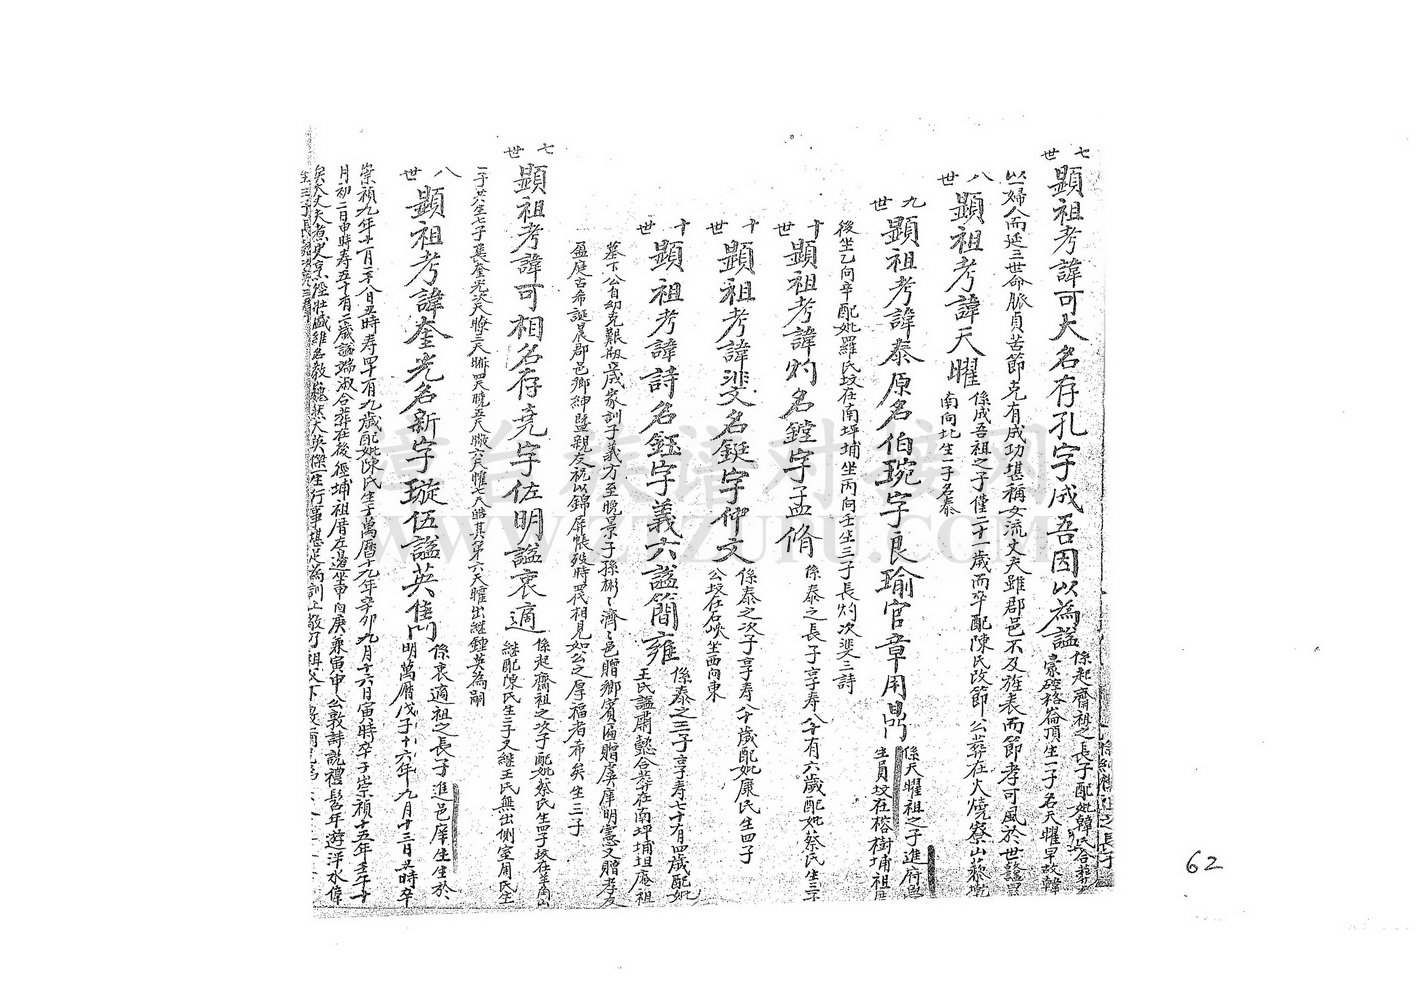 七世
顯祖考諱可大名存孔字成吾因以為謚
係起齋祖之長子配妣韓氏合葬
崙頂生一子名天曜早故韓
以一婦人而延三世命脈貞苦節克有成功堪稱女流丈夫雖郡邑不及旌表而節孝可風於世謚
八世
顯祖考諱天曜
係成吾祖之子僅二十一歲而卒配陳氏改節公葬在火燒寮山
南向北生一子名泰
九世
顯祖考諱泰原名伯琬字良瑜官章用勗
係天曜祖之子進府
生員坟在榕樹埔祖
後坐乙向辛配妣羅氏坟在南坪埔坐丙向壬生三子長灼次斐三詩
十世
顯祖考諱灼名鏜字孟脩
係泰之長子享寿八十有六歲配妣蔡氏生三子
十世
顯祖考諱斐名鋌字仲文
係泰之次子享寿八十歲配妣廉氏生四子
公坟在石峽坐西向東
十世
顯祖考諱詩名鈺字義六謚簡雍
係泰之三子享寿七十有四歲配妣
王氏謚肅懿合葬在南坪埔坦庵祖
墓下公自幼克艱 歲家訓子義方至晚景子孫彬彬濟濟邑贈鄉賓匾贈虞庠明憲又贈孝友
盈庭古希誕晨郡邑鄉紳暨親友祝以錦屏帳殁時罢相見如公之厚福者希矣生三子
七世
顯祖考諱可相名存堯字佐明謚衷適
係起齋祖之次子配妣蔡氏生四子坟在羊角山
継配陳氏生三子又継王氏無出側室周氏生
二子共生七子長奎光次天 三天 四天曉五天 六天 七天 其第六天 出継鍾英為嗣
八世
顯祖考諱奎光名新字璇伍謚英雋
係衷適祖之長子進邑庠生生於
明萬曆戊子十六年九月十三日丑時卒
崇禎九年十一月二十八日丑時寿四十有九歲配妣陳氏生于萬曆十九年辛卯九月十六日寅時卒于崇禎十五年壬午十
月初二日申時寿五十有二歲謚端淑合葬在後徑埔祖厝左邊坐甲向庚兼寅申公敦詩說禮髫年遊泮水偉
矣大丈夫者 史 經 維名教 大英傑一生行事堪足為訓上敬
生三子長
62
漳台族谱对接网
WWW.ZTZUPU.COM